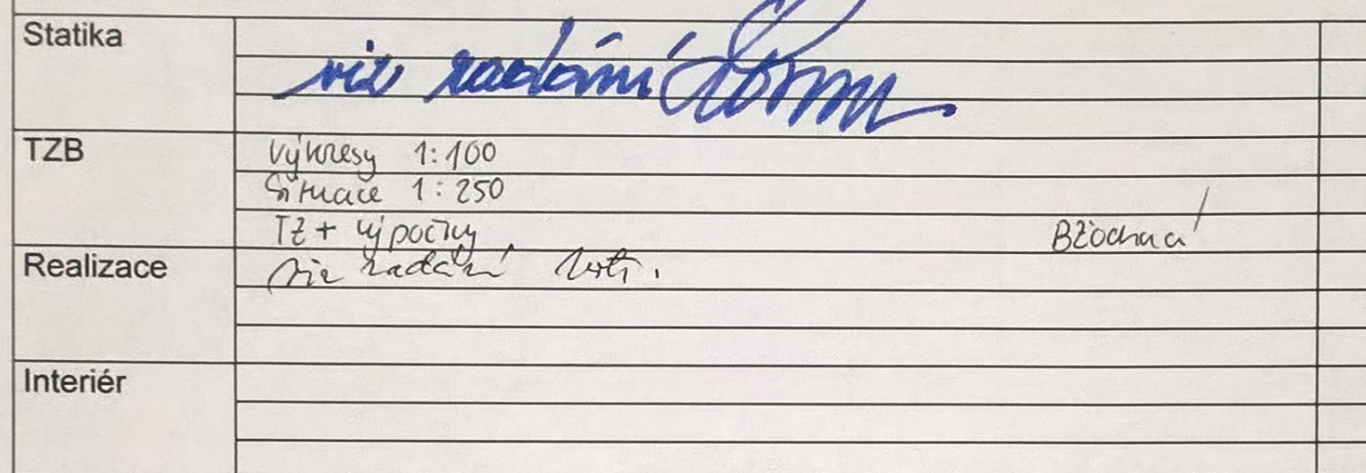 Statika
viz zadání
TZB
Výkresy 1:100
Situace 1:250
TZ + výpočty
Realizace
viz zadání
Interiér